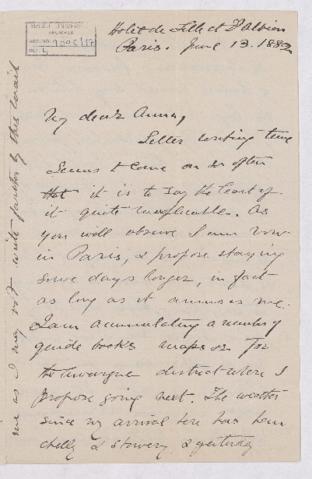 Hotel de Lille et d'Albion
Paris. June 13. 1882
My dear Anna,
Letter writing time
seems to come on so often
that it is to say the least of
it quite inexplicable. As
you will observe I am now
in Paris, & propose staying
some days longer, in fact
as long as it amuses me.
I am accumulating a number of
guide books maps &c for
the Auvergne district where I
propose going next. The weather
since my arrival here has been
chilly & showery & yesterday
me as I may not write further by this mail